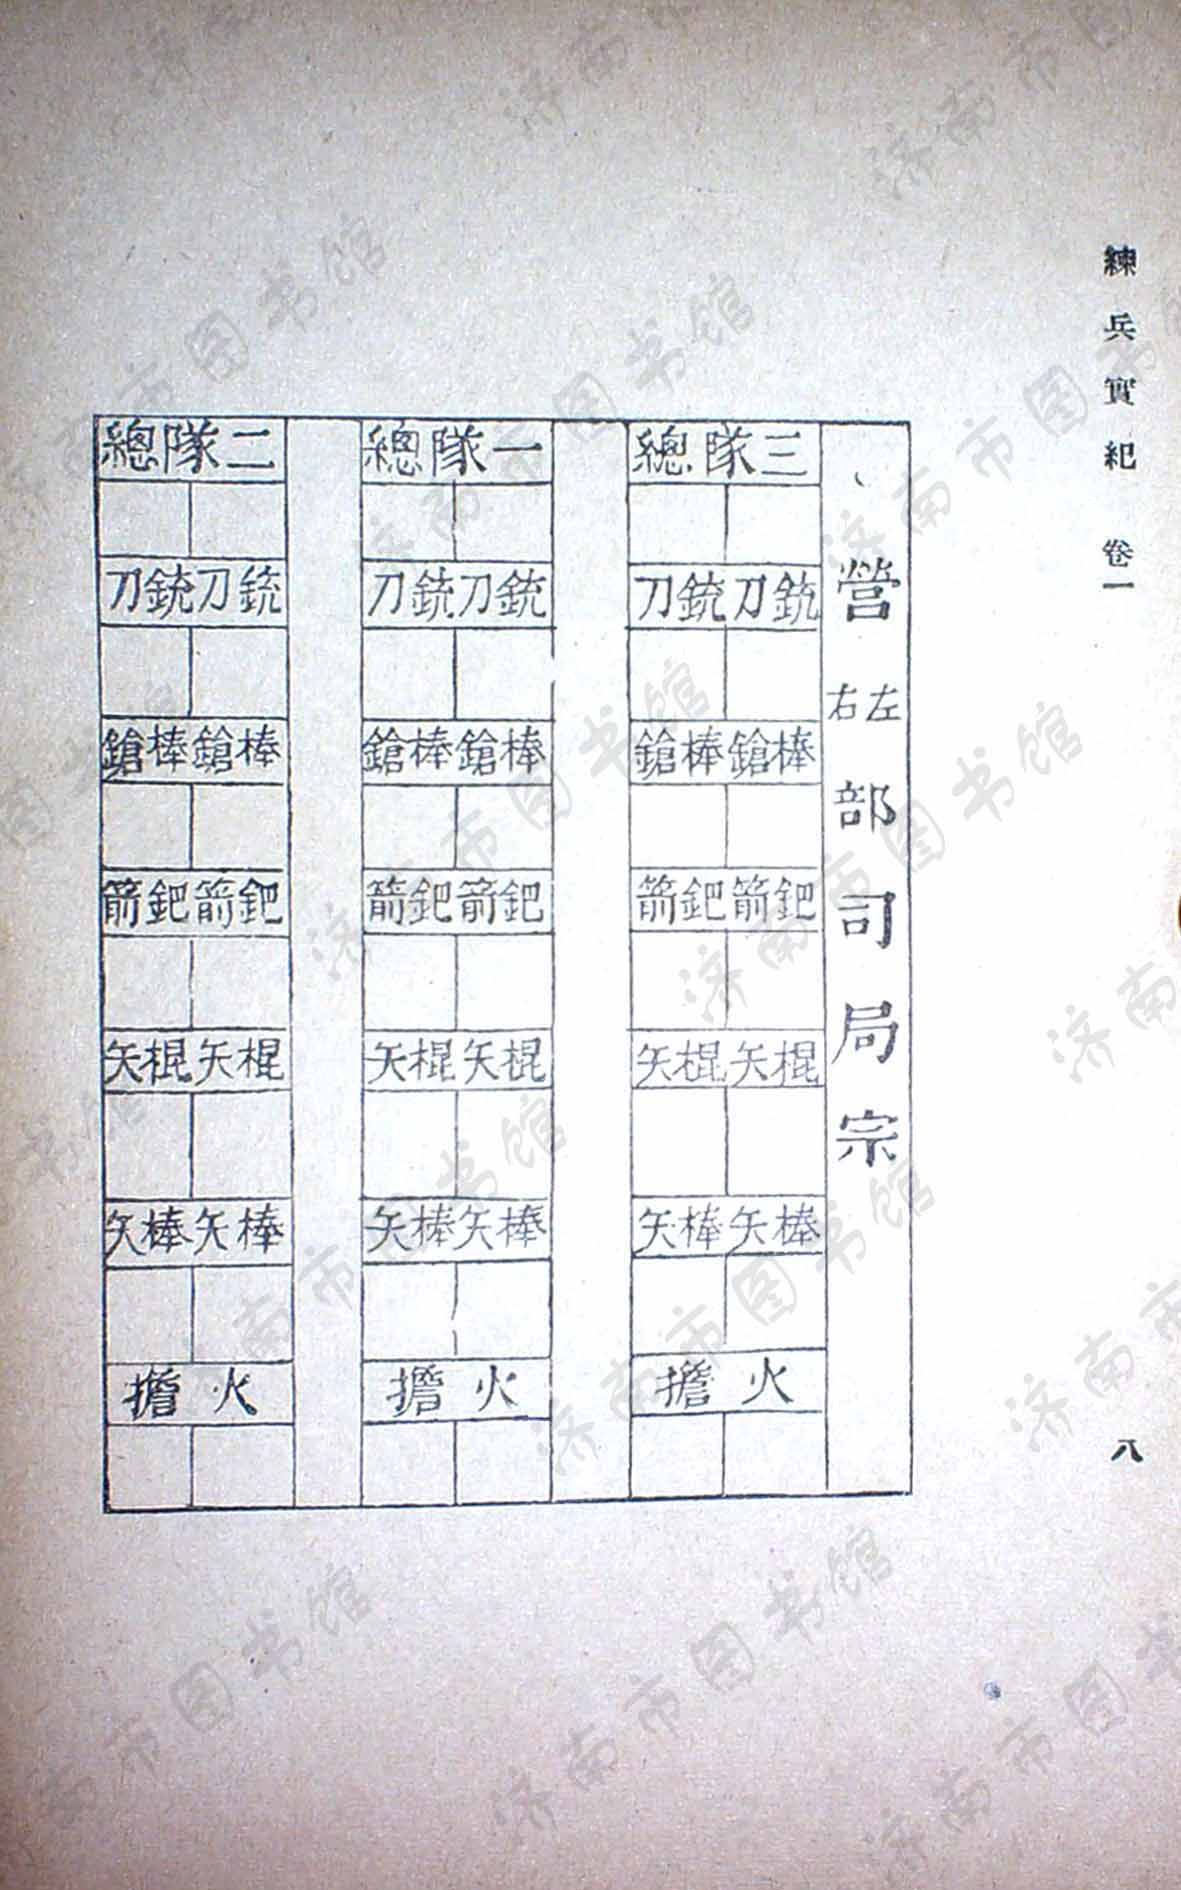 練兵實紀 卷一
八
營左右部司局宗
三隊總
銃刀銃刀
棒鎗棒鎗
鈀箭鈀箭
棍矢棍矢
棒矢棒矢
火擔
一隊總
銃刀銃刀
棒鎗棒鎗
鈀箭鈀箭
棍矢棍矢
棒矢棒矢
火擔
二隊總
銃刀銃刀
棒鎗棒鎗
鈀箭鈀箭
棍矢棍矢
棒矢棒矢
火擔
济南市图书馆